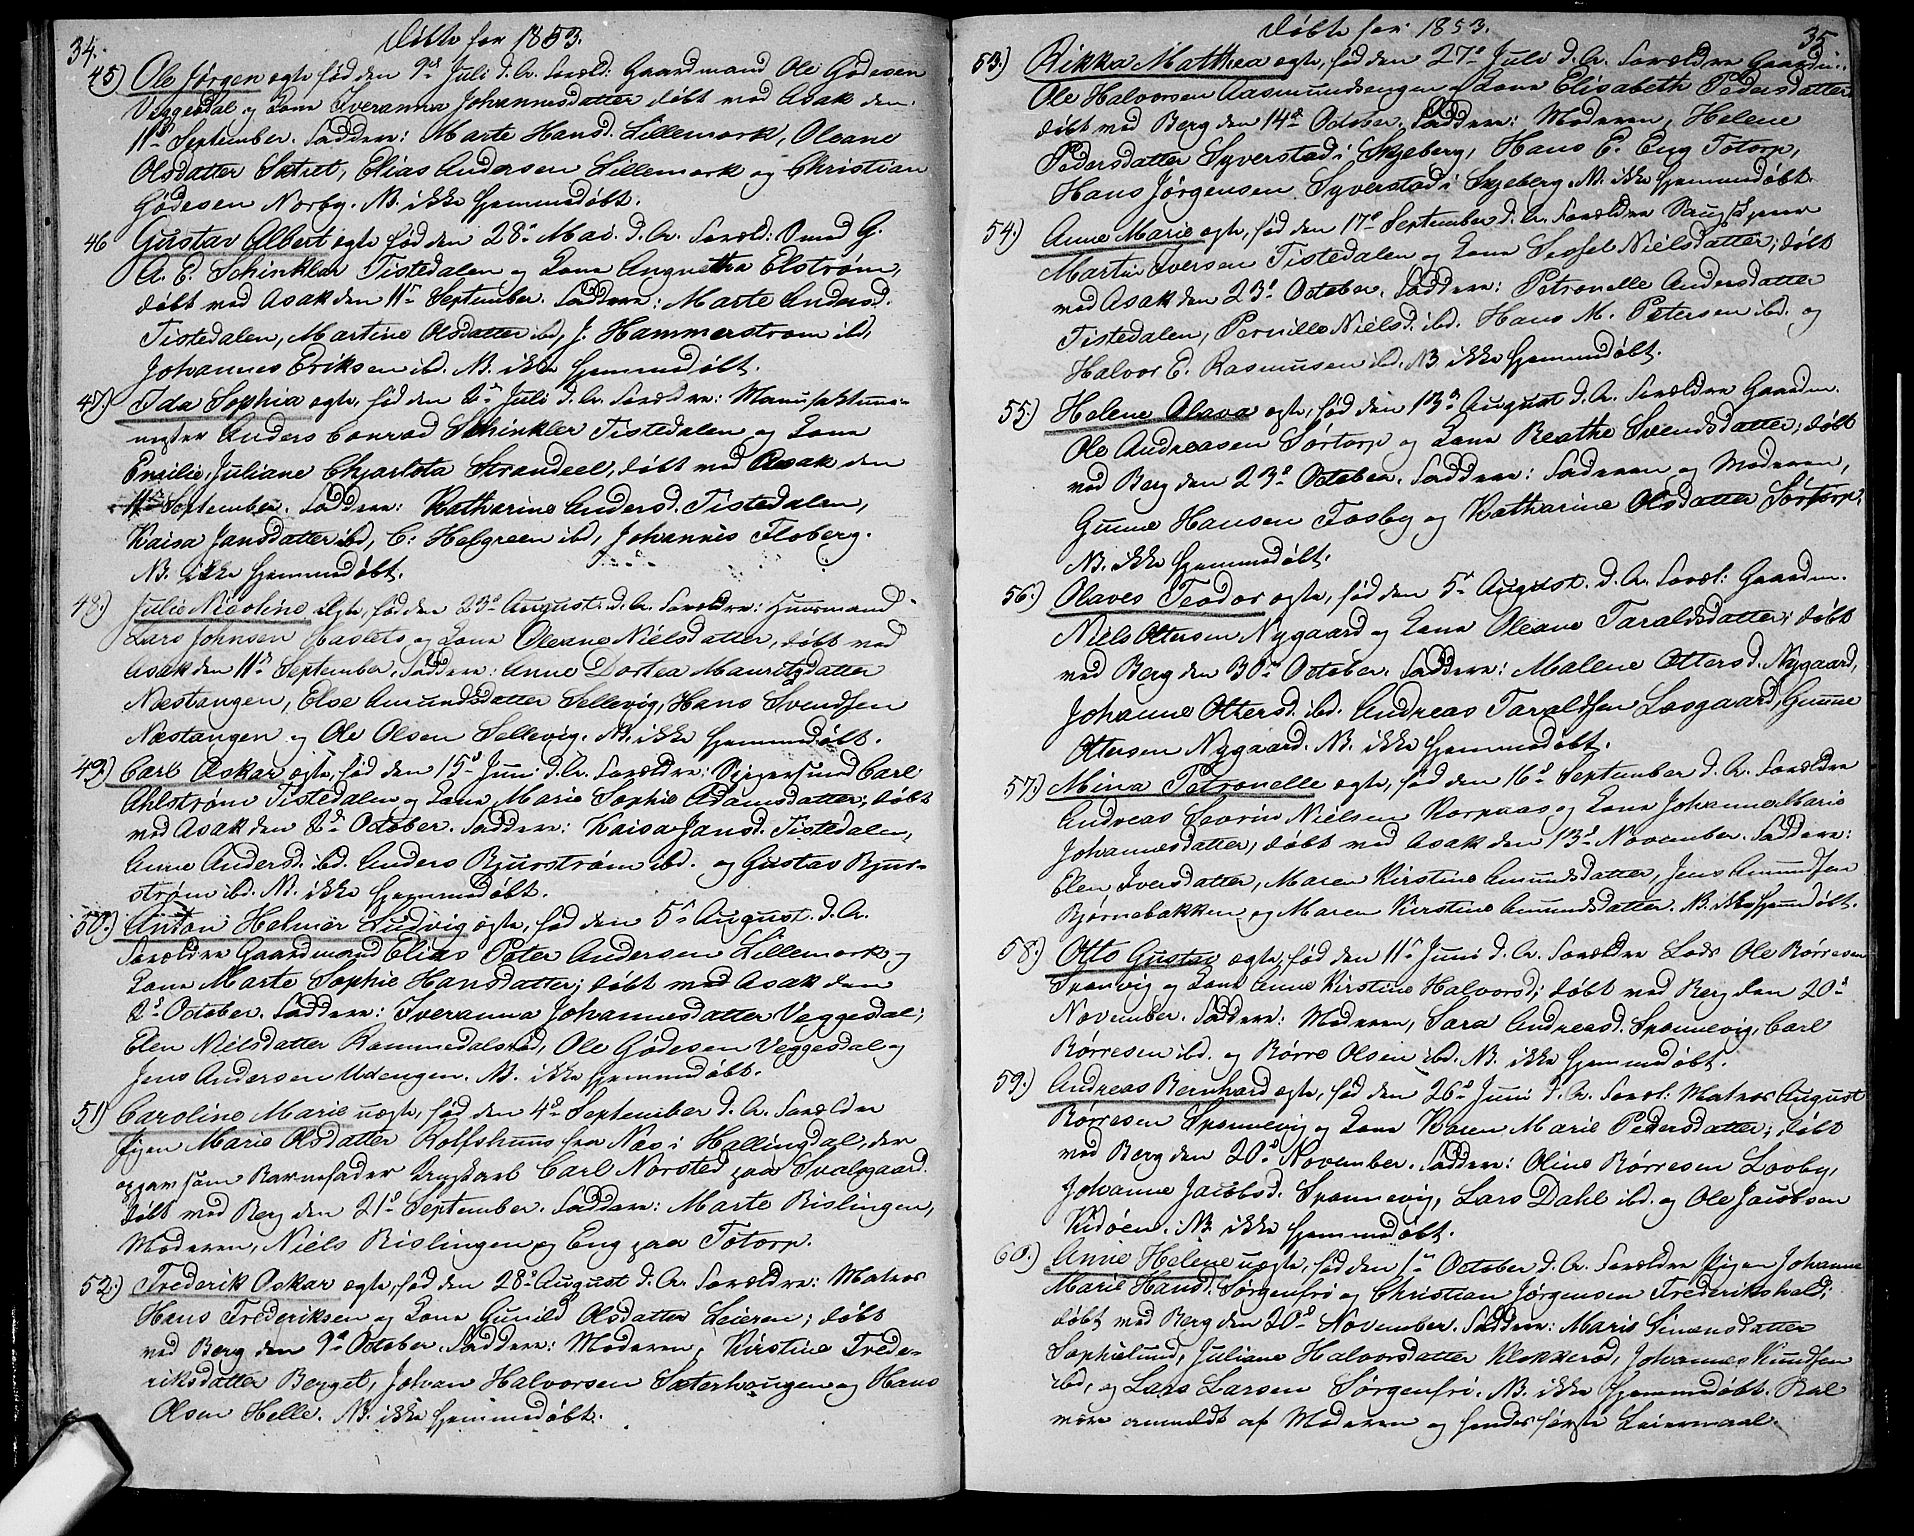 34.
Döbte for 1853.
45) Ole Jørgen egte, fød den 9de Juli d. Ar. Foræld: Gaardmand Ole Gödesen
Veggesdal og Kone Iveranna Johannesdatter döbt ved Asak den
11te September. Faddere: Marte Hansd. Lillemork, Oleane
Olsdatter Sætret, Elias Andersen Lillemork og Christian
Gödesen Norby. NB. ikke hjemmedöbt.
46 Gustav Albert egte fød den 28de Mai. d. Ar. Foræld: Smed G.
A. E. Schinkler Tistedalen og Kone Augustha Elström,
döbt ved Asak den 11te September. Faddere: Marte Andersd.
Tistedalen, Martine Olsdatter ibd, J. Hammerstrom ibd,
Johannes Eriksen ibd. NB. ikke hjemmedöbt.
47.) Ida Sophia egte, fød den 2de Juli d. Ar. Forældre: Manufaktur-
mester Anders Conrad Schinkler Tistedalen og Kone
Emilie Juliane Chjarlsta Strandeel, döbt ved Asak den
11te September. Faddere: Katharine Andersd. Tistedalen,
Kaisa Jansdatter ibd, C: Helgreen ibd, Johannis Floberg.
NB. ikke hjemmedöbt.
48.) Julie Nicoline egte, fød den 23de August. d. Ar. Forældre: Huusmand
Lars Johnsen Hasleto og Kone Oleane Nielsdatter, döbt ved
Asak den 11te September. Faddere: Anne Dortea Mauritzdatter
Næstangen, Else Amundsdatter Sellevig, Hans Svendsen
Næstangen og Ole Olsen Sellevig. NB. ikke hjemmedöbt.
49.) Carl Oskar egte, fød den 15de Juni d. Ar. Forældre: Carl
Ahlström Tistedalen og Kone Marie Sophie Adamsdatter; döbt
ved Asak den 2de October. Faddere: Kaisa Jansd. Tistedalen,
Anne Andersd. ibd. Anders Bjurström ibd. og Gustav Bjur-
ström ibd. NB. ikke hjemmedöbt.
50.) Anton Helmer Ludvig egte, fød den 5te August. d. Ar.
Forældre Gaardmand Elias Peter Andersen Lillemork og
Kone Marte Sophie Hansdatter; döbt ved Asak den
2de October. Faddere: Iveranna Johannesdatter Veggesdal;
Elen Nielsdatter Rammedalsröd, Ole Gödesen Veggesdal og
Jens Andersen Udengen. NB. ikke hjemmedöbt.
51) Caroline Marie uægte, fød den 4de September d. Ar. Forældre
Pigen Marie Olsdatter Rolfshuus fra Næs i Hallingdal, der
opgav som Barnefader Ungkarl Carl Norsted paa Svalgaard.
döbt ved Berg den 21de September. Faddere: Marte Rislingen,
Moderen, Niels Rislingen og Eng paa Totorp.
52.) Frederik Oskar egte, fød den 28de August d. Ar. Forældre: Matros
Hans Frederiksen og Kone Gunild Olsdatter Leieren; döbt
ved Berg den 9de October. Faddere: Moderen, Kirstine Frede-
riksdatter Berget, Johan Halvorsen Sæterhaugen og Hans
Olsen Helle. NB. ikke hjemmedöbt.
Döbte for 1853.
35.
53.) Rikka Mathea egte, fød den 27de Juli d. Ar. Forældre Gaardm.
Ole Halvorsen Aasmundsengen og Kone Elisabeth Pedersdatter,
döbt ved Berg den 14de October. Faddere: Moderen, Helene
Pedersdatter Syverstad i Skjeberg, Hans E. Eng Totorp,
Hans Jörgensen Syverstad i Skjeberg. NB. ikke hjemmedöbt.
54.) Anne Marie egte, fød den 17de September d. Ar. Forældre
Martin Iversen Tistedalen og Kone Sessel Nielsdatter; döbt
ved Asak den 23de October. Faddere: Petronelle Andersdatter
Tistedalen, Pernille Nielsd. ibd. Hans M. Petersen ibd. og
Halvor E. Rasmussen ibd. NB. ikke hjemmedöbt.
55.) Helene Olava egte, fød den 13de August d. Ar. Forældre Gaardm.
Ole Andreasen Sörtorp og Kone Beathe Svendsdatter; döbt
ved Berg den 23de October. Faddere: Faderen og Moderen,
Gunne Hansen Fosby og Katharine Olsdatter Sörtorp.
NB. ikke hjemmedöbt.
56.) Olaves Teodor egte, fød den 5te August. d. Ar. Foræl: Gaardm.
Niels Ottersen Nygaard og Kone Oleane Taraldsdatter; döbt
ved Berg den 30te October. Faddere: Malene Ottersd. Nygaard,
Johanne Ottersd. ibd. Andreas Taraldsen Løsgaard, Gunne
Ottersen Nygaard. NB. ikke hjemmedöbt.
57.) Mina Petronelle egte, fød den 16de September d. Ar. Forældre
Andreas Severin Nielsen Korpaas og Kone Johanne Marie
Johannesdatter, döbt ved Asak den 13de November. Faddere:
Elen Iversdatter, Maren Kirstine Amundsdatter, Jens Amundsen
Bjørnebakken og Maren Kirstine Amundsdatter. NB. ikke hjemmedöbt.
58.) Otto Gustav egte, fød den 11te Juni d. Ar. Forældre Lods Ole Børresen
Sponvig og Kone Anne Kirstine Halvorsd; döbt ved Berg den 20de
November. Faddere: Moderen, Sara Andreasd. Sponnevig, Carl
Børresen ibd. og Børre Olsen ibd. NB. ikke hjemmedöbt.
59.) Andreas Bernhard egte, fød den 26de Juni d. Ar. Foræl: Matros August
Børresen Sponnevig og Kone Karen Marie Pedersdatter; döbt
ved Berg den 20de November. Faddere: Oline Børresen Lööby,
Johanne Jacobsd. Sponnevig, Lars Dahl ibd. og Ole Jacobsen
Kidöen. NB. ikke hjemmedöbt.
60.) Anne Helene uægte, fød den 1te October d. Ar. Forældre Pigen Johanne
Marie Hansd. Sörgenfri og Christian Jörgensen Frederikshald;
döbt ved Berg den 20de November. Faddere: Maris Simensdatter
Sophielund, Juliane Halvorsdatter Klokkeröd, Johannes Knudsen
ibd, og Lars Larsen Sörgenfri. NB. ikke hjemmedöbt. Skal
være anmeldt af Moderen og hendes förste Leiermaal.